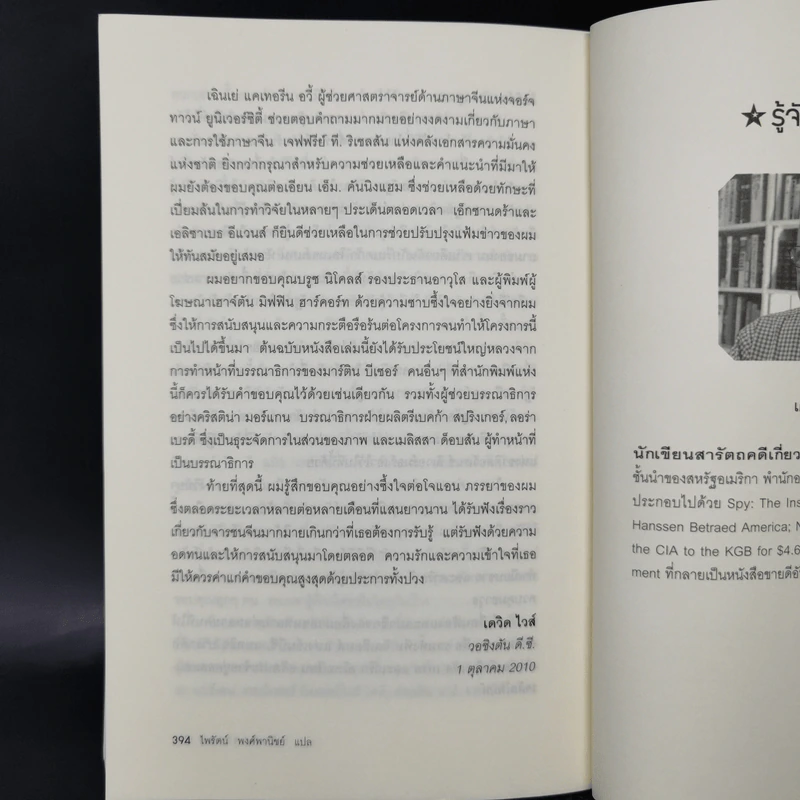 เฉินเย่ แคเทอรีน อวี้ ผู้ช่วยศาสตราจารย์ด้านภาษาจีนแห่งจอร์จ
ทาวน์ ยูนิเวอร์ซิตี้ ช่วยตอบคำถามมากมายอย่างงดงามเกี่ยวกับภาษา
และการใช้ภาษาจีน เจฟฟรีย์ ที. ริเชลสัน แห่งคลังเอกสารความมั่นคง
แห่งชาติ ยิ่งกว่ากรุณาสำหรับความช่วยเหลือและคำแนะนำที่มีมาให้
ผมยังต้องขอบคุณต่อเอียน เอ็ม. คันนิงแฮม ซึ่งช่วยเหลือด้วยทักษะที่
เปี่ยมล้นในการทำวิจัยในหลายๆ ประเด็นตลอดเวลา เอ็กซานดร้าและ
เอลิซาเบธ อีแวนส์ ก็ยินดีช่วยเหลือในการช่วยปรับปรุงแฟ้มข่าวของผม
ให้ทันสมัยอยู่เสมอ
ผมอยากขอบคุณบรูซ นิโคลส์ รองประธานอาวุโส และผู้พิมพ์ผู้
โฆษณาเฮาจ์ตัน มิฟฟิน ฮาร์คอร์ท ด้วยความซาบซึ้งใจอย่างยิ่งจากผม
ซึ่งให้การสนับสนุนและความกระตือรือร้นต่อโครงการจนทำให้โครงการนี้
เป็นไปได้ขึ้นมา ต้นฉบับหนังสือเล่มนี้ยังได้รับประโยชน์ใหญ่หลวงจาก
การทำหน้าที่บรรณาธิการของมาร์ติน บีเซอร์ คนอื่นๆ ที่สำนักพิมพ์แห่ง
นี้ก็ควรได้รับคำขอบคุณไว้ด้วยเช่นเดียวกัน รวมทั้งผู้ช่วยบรรณาธิการ
อย่างคริสติน่า มอร์แกน บรรณาธิการฝ่ายผลิตรีเบคก้า สปริงเกอร์, ลอร่า
เบรดี้ ซึ่งเป็นธุระจัดการในส่วนของภาพ และเมลิสสา ด็อบสัน ผู้ทำหน้าที่
เป็นบรรณาธิการ
ท้ายที่สุดนี้ ผมรู้สึกขอบคุณอย่างซึ้งใจต่อโจแอน ภรรยาของผม
ซึ่งตลอดระยะเวลาหลายต่อหลายเดือนที่แสนยาวนาน ได้รับฟังเรื่องราว
เกี่ยวกับจารชนจีนมากมายเกินกว่าที่เธอต้องการรับรู้ แต่รับฟังด้วยความ
อดทนและให้การสนับสนุนมาโดยตลอด ความรักและความเข้าใจที่เธอ
มีให้ควรค่าแก่คำขอบคุณสูงสุดด้วยประการทั้งปวง
เดวิด ไวส์
วอชิงตัน ดี.ซี.
1 ตุลาคม 2010
394 ไพรัตน์ พงศ์พานิชย์ แปล
★ รู้จั
นักเขียนสารัตถคดีเกี่ยว
ชั้นนำของสหรัฐอเมริกา พำนักอ
ประกอบไปด้วย Spy: The Ins
Hanssen Betraed America; N
the CIA to the KGB for $4.6
ment ที่กลายเป็นหนังสือขายดีอั